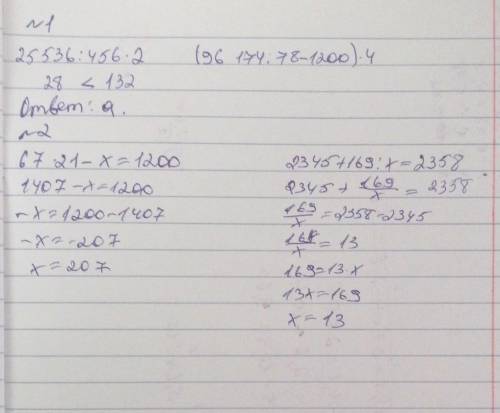 №1
25536:456·2 (96 174:78-1200)·4
28 < 132
Ответ: а.
№2
67 21-x=1200
1407-x=1200
-x=1200-1407
-x=-207
x=207
2345+169:x=2358
2345+169/x=2358
169/x=2358-2345
169/x=13
169=13·x
13x=169
x=13